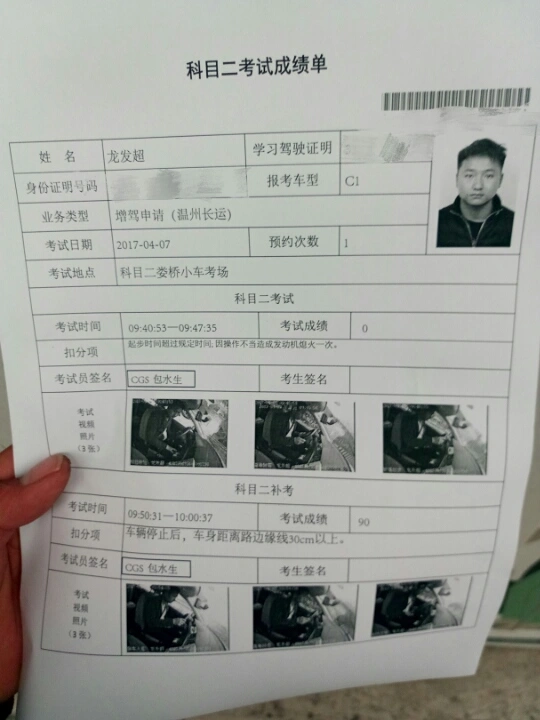 科目二考试成绩单
姓 名 龙发超 学习驾驶证明
身份证明号码 报考车型 C1
业务类型 增驾申请（温州长运）
考试日期 2017-04-07 预约次数 1
考试地点 科目二娄桥小车考场
科目二考试
考试时间 09:40:53—09:47:35 考试成绩 0
扣分项 起步时间超过规定时间; 因操作不当造成发动机熄火一次。
考试员签名 CGS 包水生 考生签名
考试
视频
照片
（3 张）
科目二补考
考试时间 09:50:31—10:00:37 考试成绩 90
扣分项 车辆停止后，车身距离路边缘线30cm以上。
考试员签名 CGS 包水生 考生签名
考试
视频
照片
（3 张）